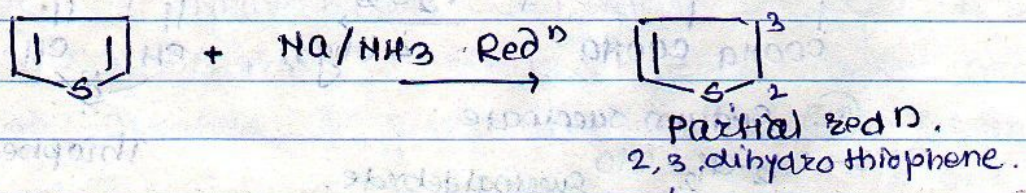 S + Na/NH3 Redⁿ S 3 2
Partial redⁿ.
2,3, dihydro thiophene.